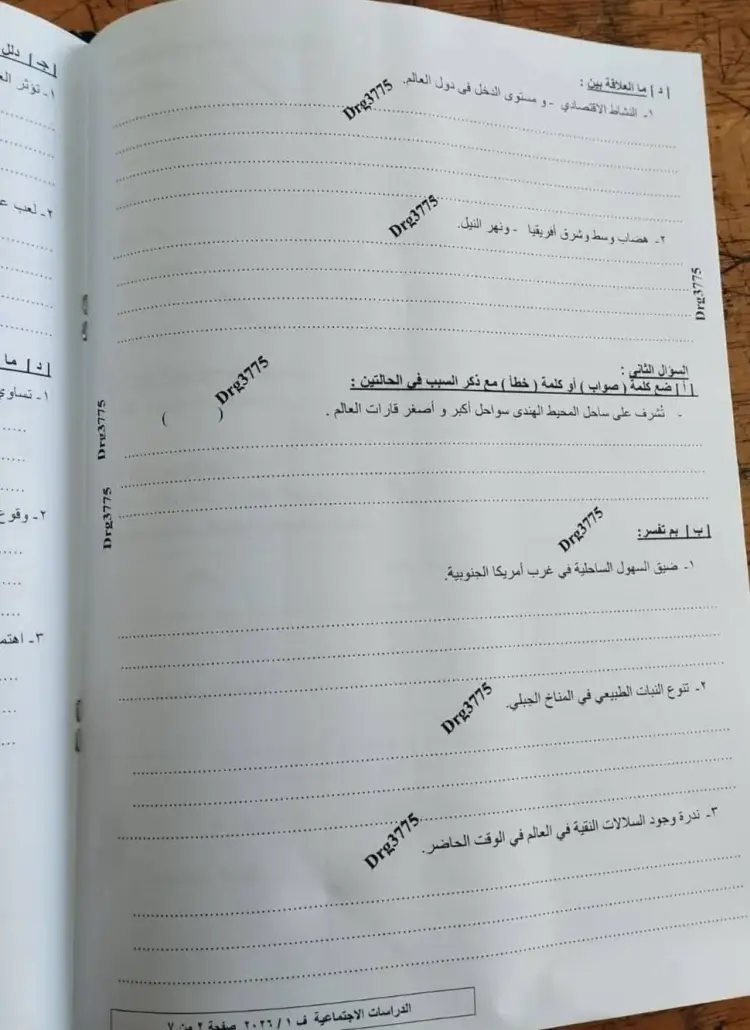 | د | ما العلاقة بين :
١- النشاط الاقتصادي - و مستوى الدخل فى دول العالم.
Drg3775
٢- هضاب وسط وشرق أفريقيا - ونهر النيل.
Drg3775
Drg3775
السؤال الثاني :
| أ | ضع كلمة ( صواب ) أو كلمة ( خطأ ) مع ذكر السبب في الحالتين :
Drg3775
- تُشرف على ساحل المحيط الهندى سواحل أكبر و أصغر قارات العالم . ( )
Drg3775
Drg3775
| ب | بم تفسر:
Drg3775
١- ضيق السهول الساحلية في غرب أمريكا الجنوبية.
٢- تنوع النبات الطبيعي في المناخ الجبلي.
Drg3775
٣- ندرة وجود السلالات النقية في العالم في الوقت الحاضر.
Drg3775
الدراسات الاجتماعية ف ١ / ٢٠٢٦ صفحة ٢ من ٧
| جـ | دلل
١- تؤثر
٢- لعب
| د | ما
١- تساوي
٢- وقوع
٣-